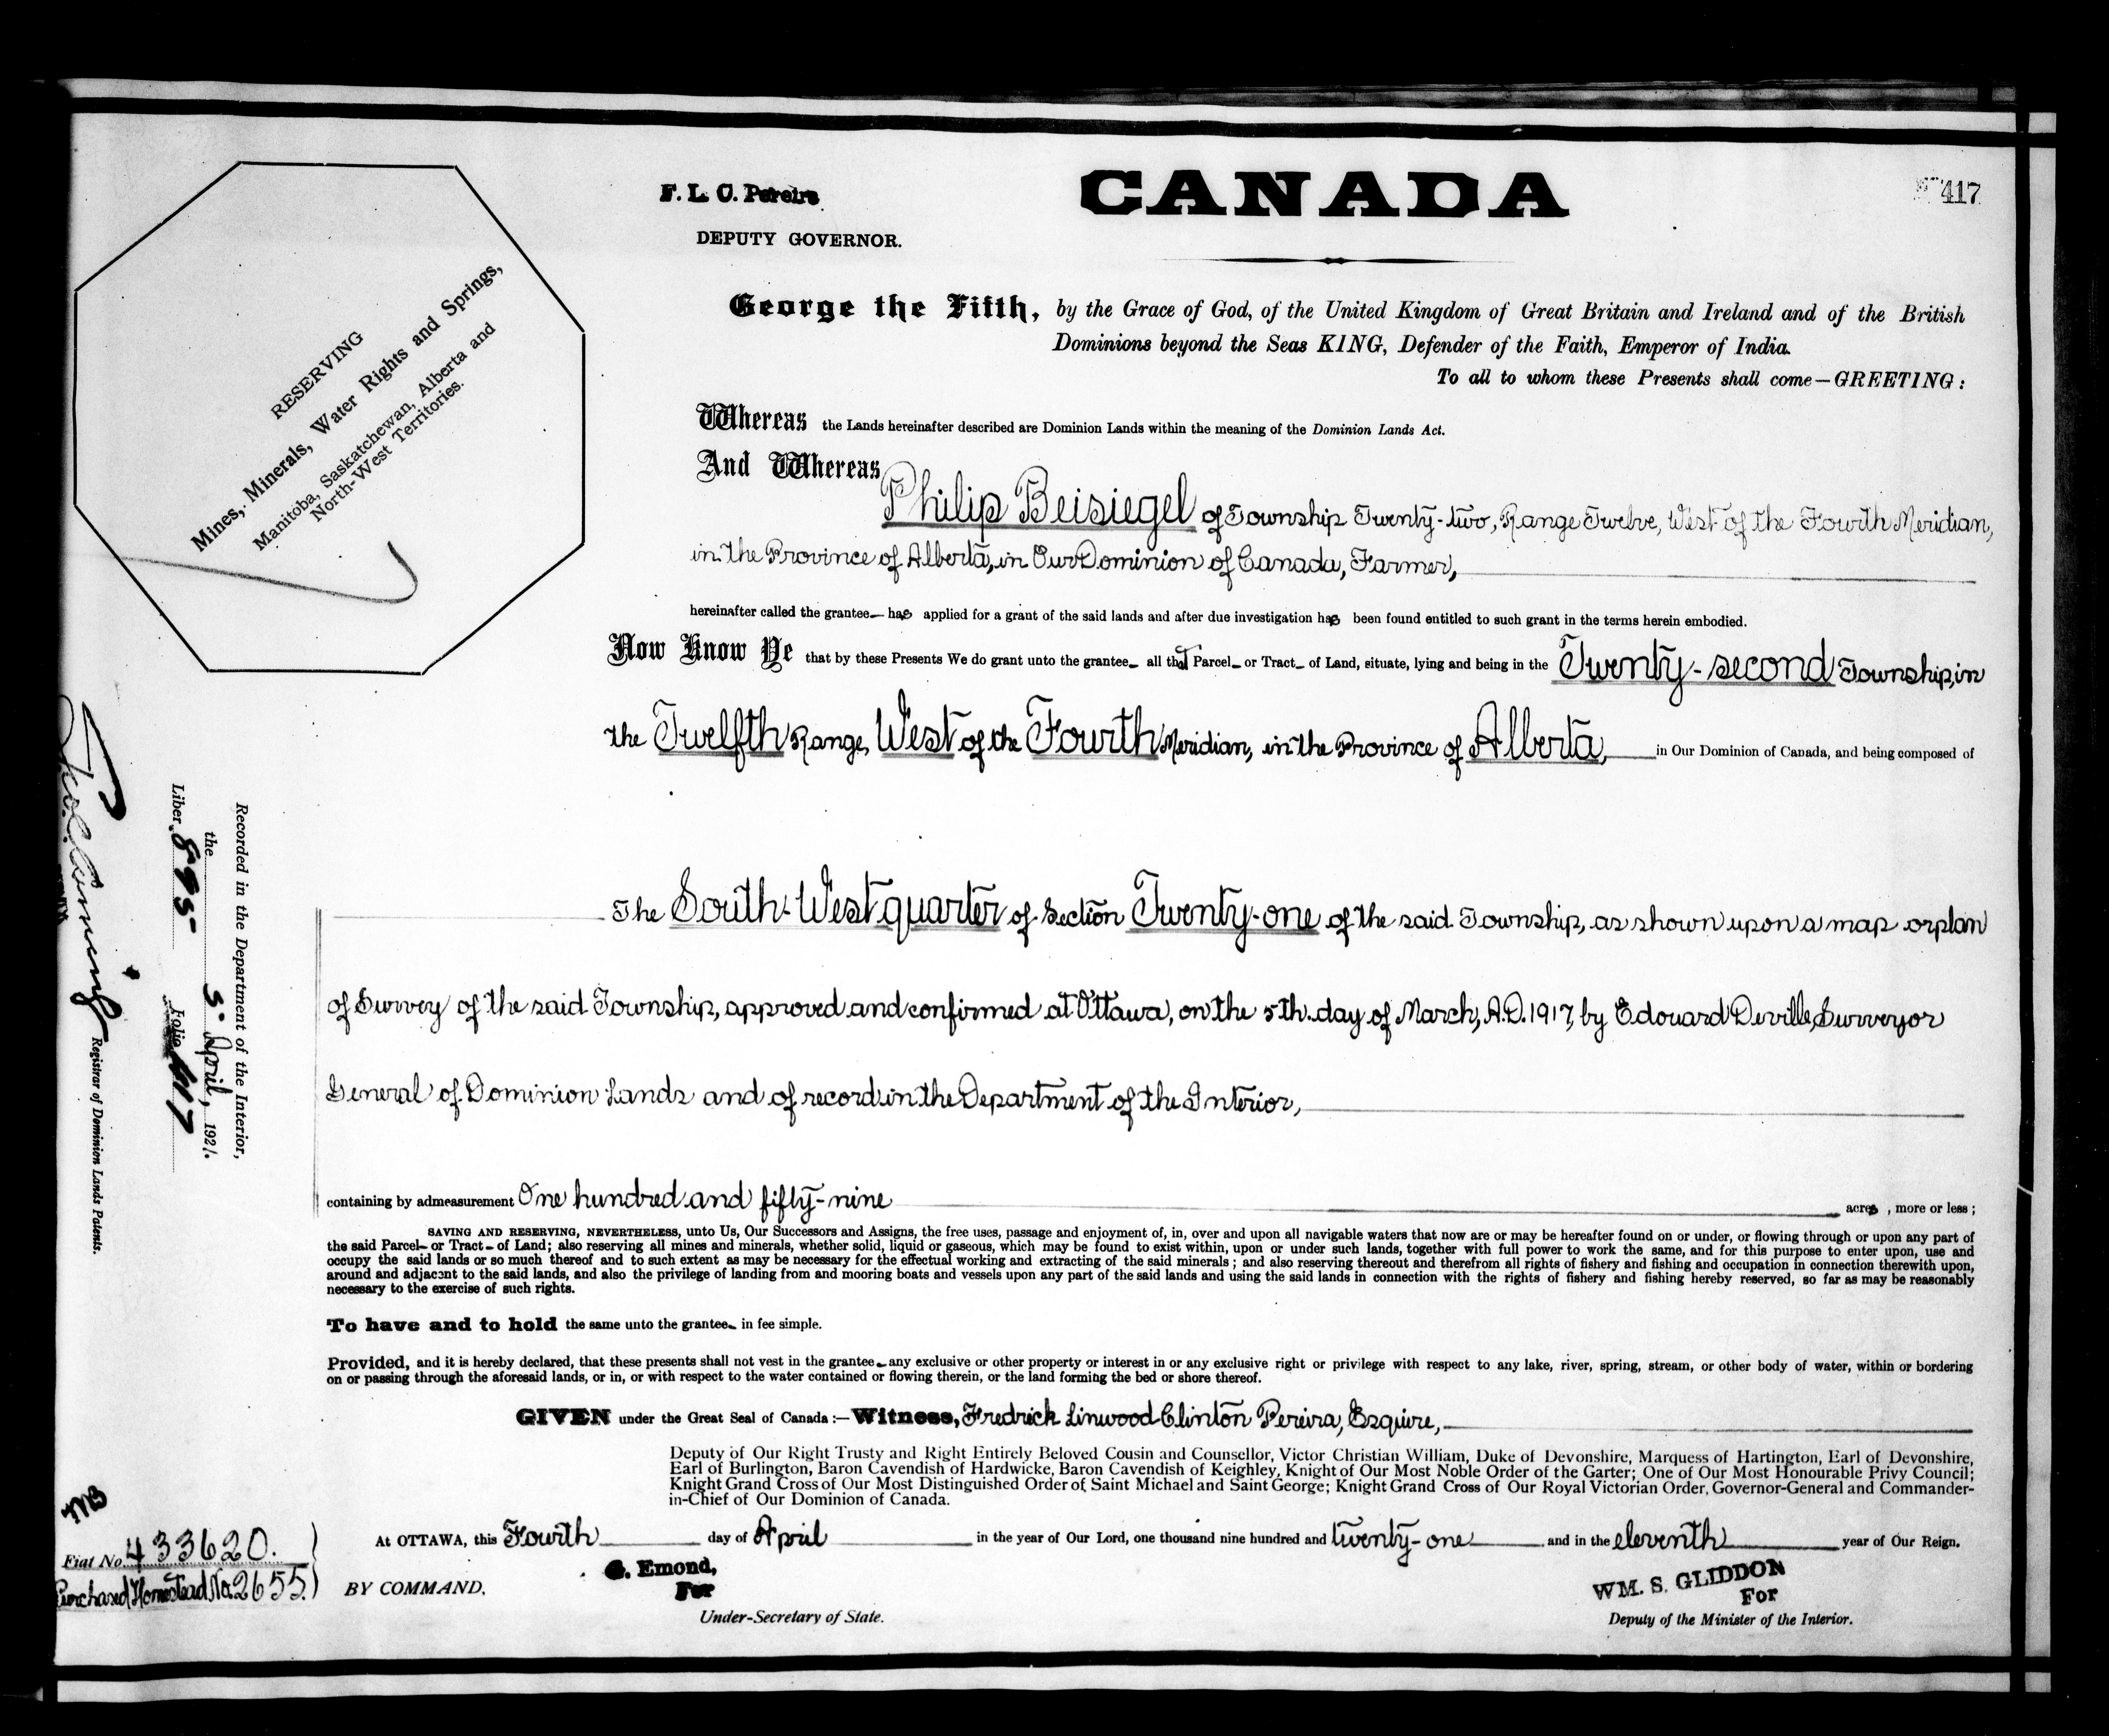 F. L. C. Pereira
DEPUTY GOVERNOR.
CANADA
417
RESERVING
Mines, Minerals, Water Rights and Springs,
Manitoba, Saskatchewan, Alberta and
North-West Territories.
George the Fifth, by the Grace of God, of the United Kingdom of Great Britain and Ireland and of the British
Dominions beyond the Seas KING, Defender of the Faith, Emperor of India.
To all to whom these Presents shall come—GREETING:
Whereas the Lands hereinafter described are Dominion Lands within the meaning of the Dominion Lands Act.
And Whereas
Philip Beisiegel of Township Twenty-two, Range Twelve, West of the Fourth Meridian,
in the Province of Alberta, in Our Dominion of Canada, Farmer,
hereinafter called the grantee has applied for a grant of the said lands and after due investigation has been found entitled to such grant in the terms herein embodied.
Now Know Ye that by these Presents We do grant unto the grantee all that Parcel or Tract of Land, situate, lying and being in the Twenty-second Township, in
the Twelfth Range, West of the Fourth Meridian, in the Province of Alberta, in Our Dominion of Canada, and being composed of
The South-West quarter of Section Twenty-one of the said Township, as shown upon a map or plan
of Survey of the said Township, approved and confirmed at Ottawa, on the 5th. day of March, A.D. 1917, by Edouard Deville, Surveyor
General of Dominion Lands and of record in the Department of the Interior,
containing by admeasurement One hundred and fifty-nine acres, more or less;
SAVING AND RESERVING, NEVERTHELESS, unto Us, Our Successors and Assigns, the free uses, passage and enjoyment of, in, over and upon all navigable waters that now are or may be hereafter found on or under, or flowing through or upon any part of
the said Parcel or Tract of Land; also reserving all mines and minerals, whether solid, liquid or gaseous, which may be found to exist within, upon or under such lands, together with full power to work the same, and for this purpose to enter upon, use and
occupy the said lands or so much thereof and to such extent as may be necessary for the effectual working and extracting of the said minerals; and also reserving thereout and therefrom all rights of fishery and fishing and occupation in connection therewith upon,
around and adjacent to the said lands, and also the privilege of landing from and mooring boats and vessels upon any part of the said lands and using the said lands in connection with the rights of fishery and fishing hereby reserved, so far as may be reasonably
necessary to the exercise of such rights.
To have and to hold the same unto the grantee in fee simple.
Provided, and it is hereby declared, that these presents shall not vest in the grantee any exclusive or other property or interest in or any exclusive right or privilege with respect to any lake, river, spring, stream, or other body of water, within or bordering
on or passing through the aforesaid lands, or in, or with respect to the water contained or flowing therein, or the land forming the bed or shore thereof.
GIVEN under the Great Seal of Canada:—Witness, Fredrick Linwood Clinton Pereira, Esquire,
Deputy of Our Right Trusty and Right Entirely Beloved Cousin and Counsellor, Victor Christian William, Duke of Devonshire, Marquess of Hartington, Earl of Devonshire,
Earl of Burlington, Baron Cavendish of Hardwicke, Baron Cavendish of Keighley, Knight of Our Most Noble Order of the Garter; One of Our Most Honourable Privy Council;
Knight Grand Cross of Our Most Distinguished Order of Saint Michael and Saint George; Knight Grand Cross of Our Royal Victorian Order, Governor-General and Commander-
in-Chief of Our Dominion of Canada.
At OTTAWA, this Fourth day of April in the year of Our Lord, one thousand nine hundred and twenty-one and in the eleventh year of Our Reign.
BY COMMAND.
G. Emond,
For
Under-Secretary of State.
WM. S. GLIDDON
For
Deputy of the Minister of the Interior.
Fiat No. 433620.
Purchased Homestead No. 2655.
Recorded in the Department of the Interior,
the 5" April, 1921.
Liber 895 Folio 417
Registrar of Dominion Lands Patents.